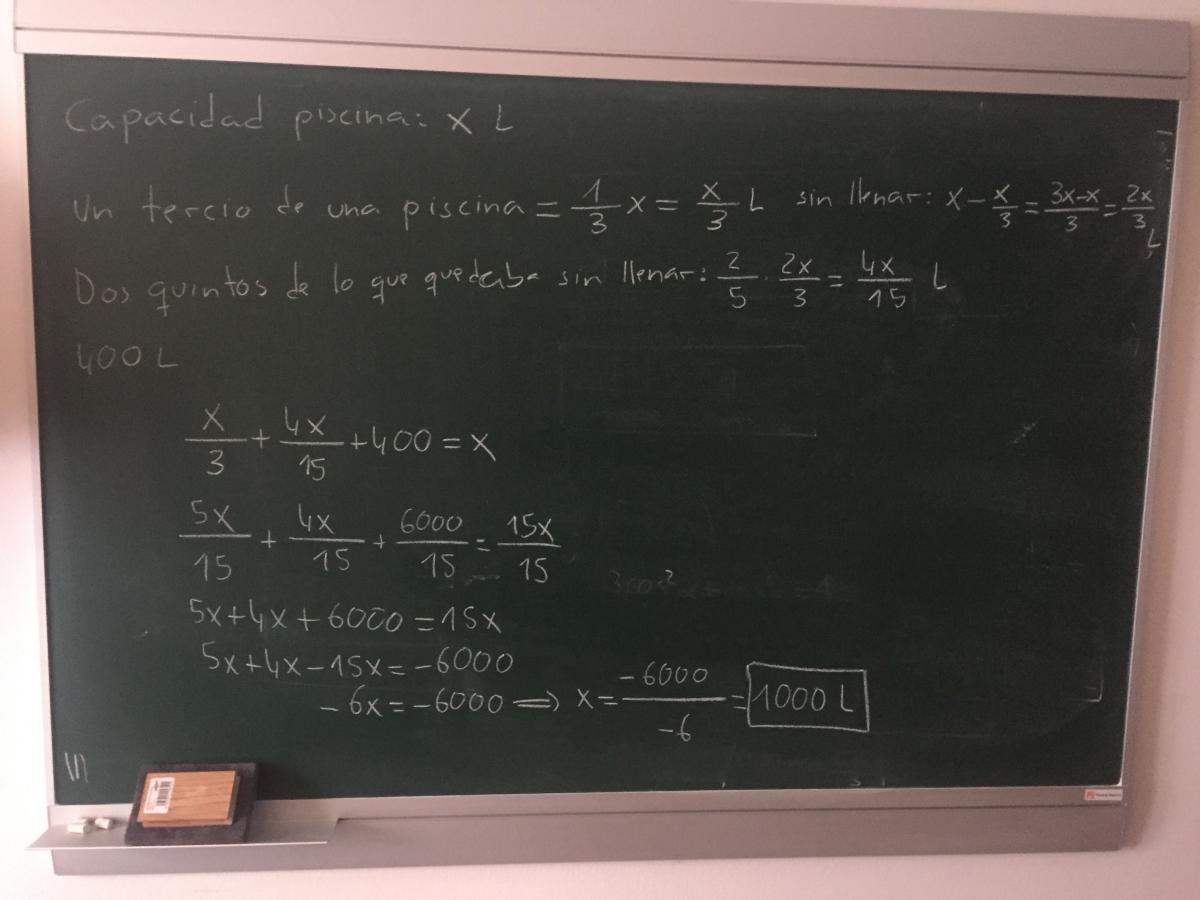 Capacidad piscina: x L
Un tercio de una piscina = 1/3 x = x/3 L sin llenar: x - x/3 = 3x-x/3 = 2x/3 L
Dos quintos de lo que quedaba sin llenar: 2/5 · 2x/3 = 4x/15 L
400 L
x/3 + 4x/15 + 400 = x
5x/15 + 4x/15 + 6000/15 = 15x/15
5x + 4x + 6000 = 15x
5x + 4x - 15x = -6000
-6x = -6000 ⟹ x = -6000/-6 = 1000 L